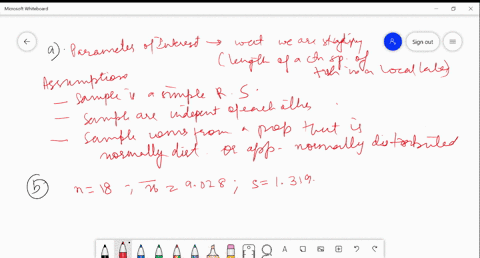 Microsoft Whiteboard
Sign out
a). Parameter of Interest → what we are studying
(length of a sp. of
fish in a local lake)
Assumption
— Sample is a simple R. S.
— Sample are indepent of each other
— Sample comes from a pop that is
normally dist or app. normally distributed
(5) n = 18 ; x̄ = 9.028 ; s = 1.319.